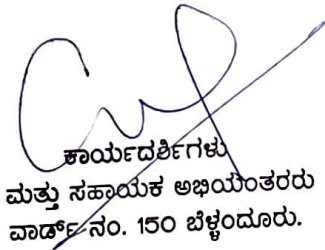 ಕಾರ್ಯದರ್ಶಿಗಳು
ಮತ್ತು ಸಹಾಯಕ ಅಭಿಯಂತರರು
ವಾರ್ಡ್ ನಂ. 150 ಬೆಳ್ಳಂದೂರು.